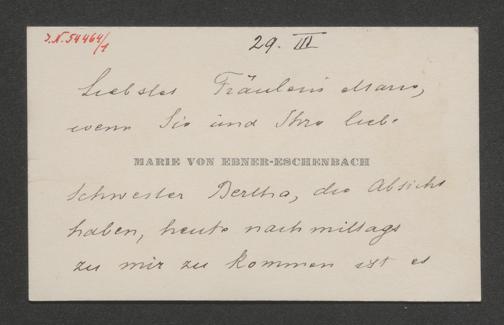 J.N. 54464/1
29. III
Liebstes Fräulein Marie,
wenn Sie und Ihre liebe
MARIE VON EBNER-ESCHENBACH
Schwester Bertha, die Absicht
haben, heute nachmittags
zu mir zu kommen ist es